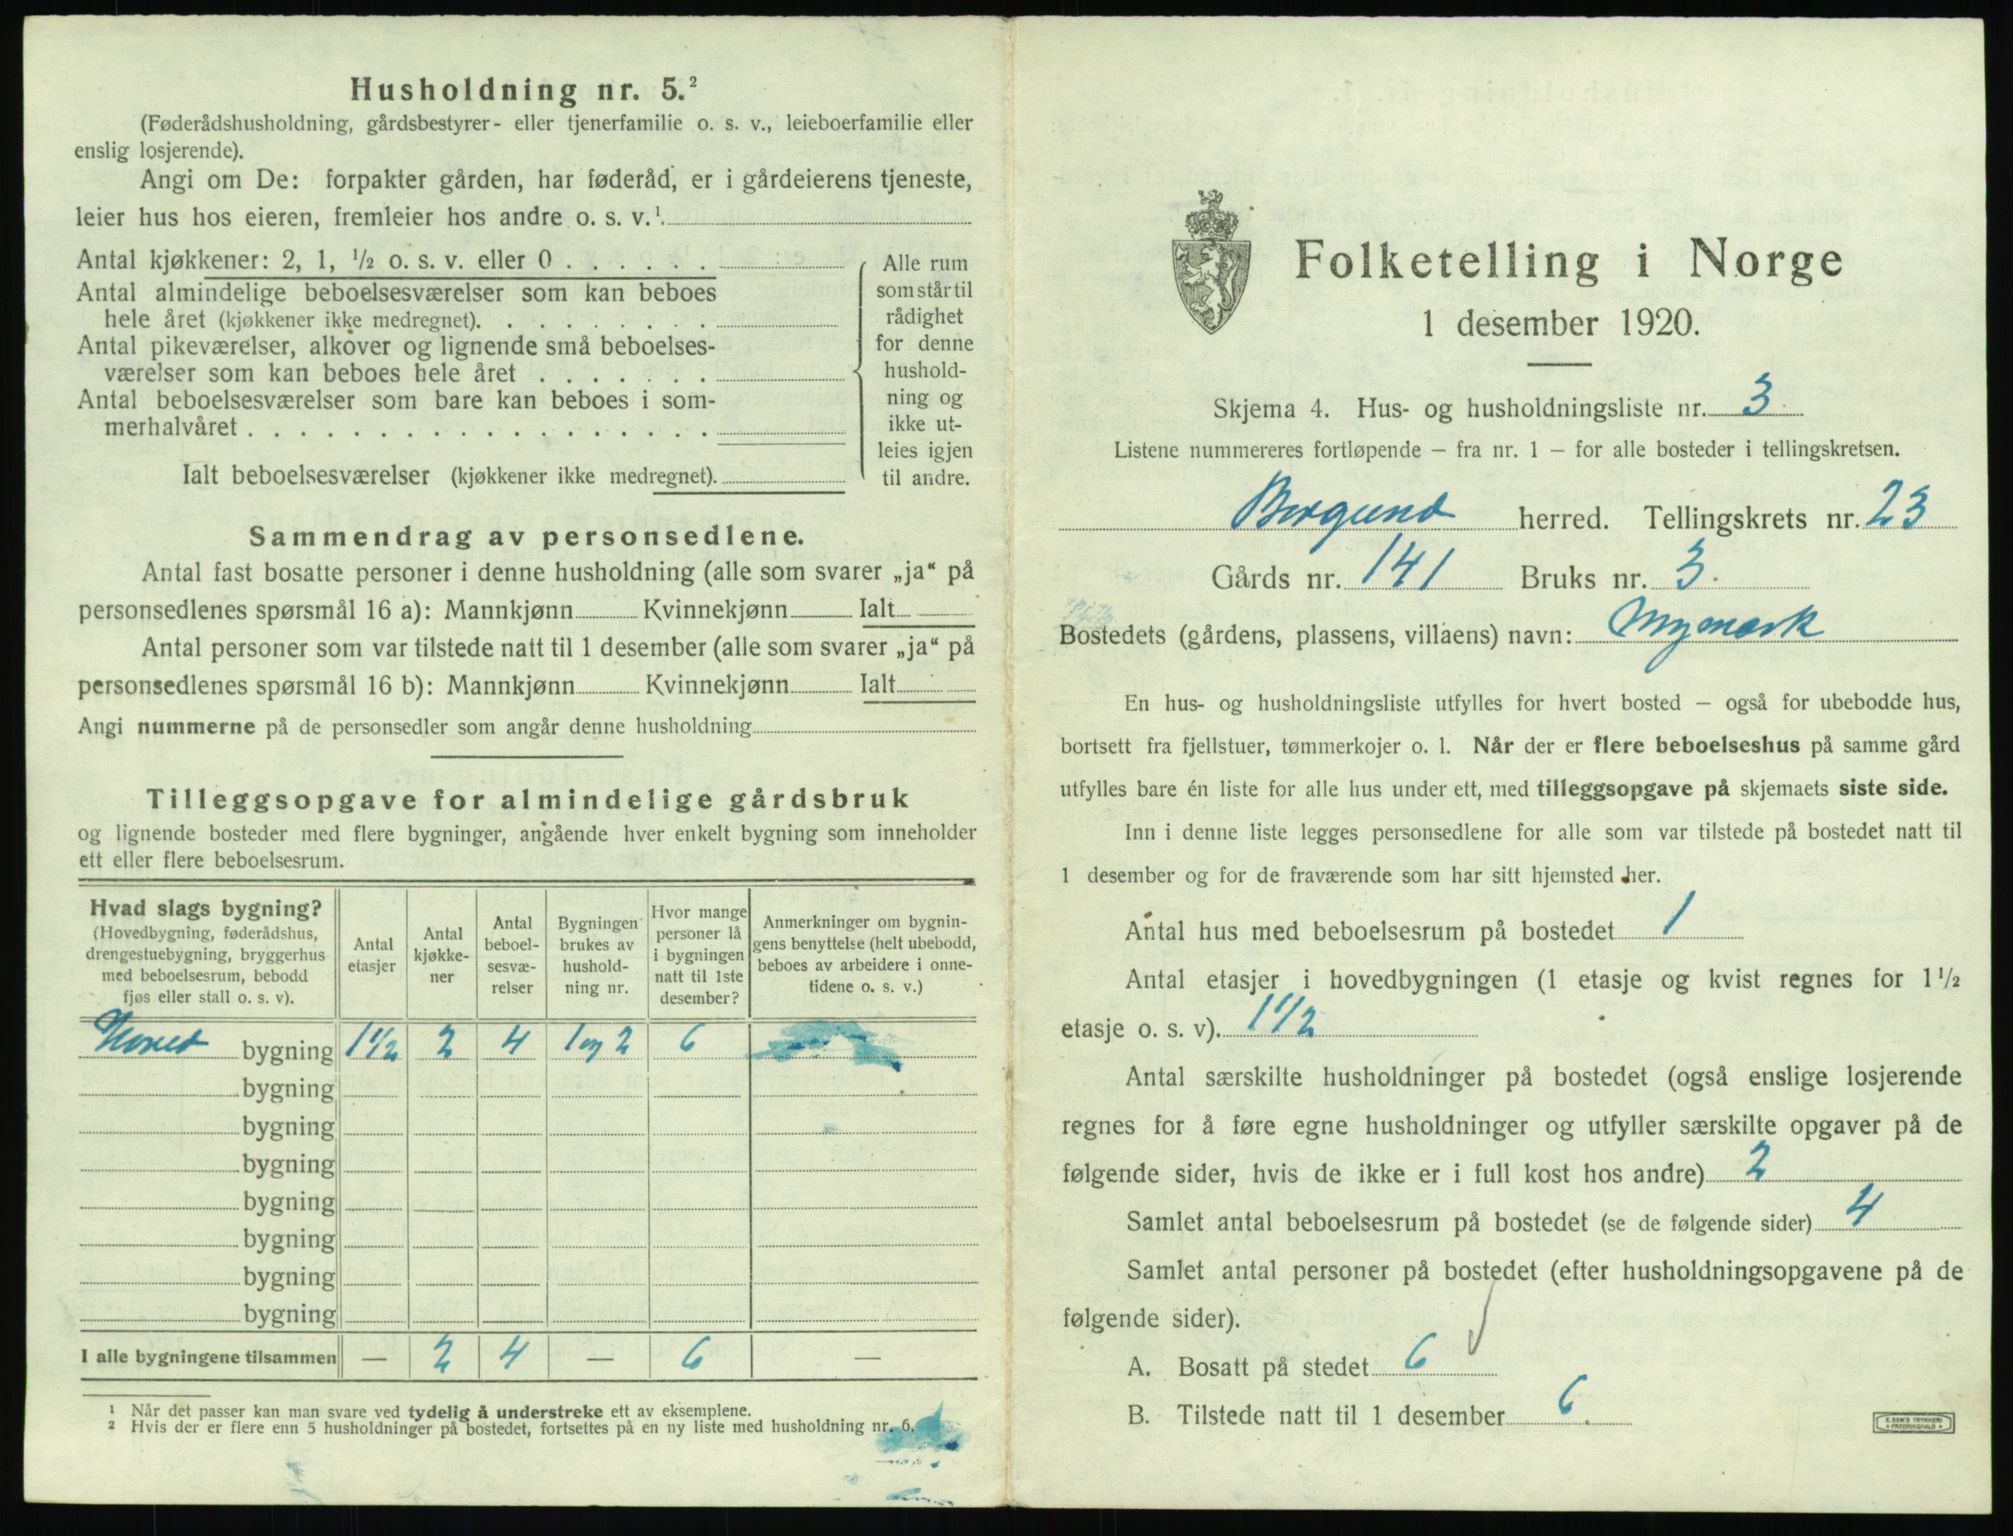 Husholdning nr. 5.²
(Føderådshusholdning, gårdsbestyrer- eller tjenerfamilie o. s. v., leieboerfamilie eller
enslig losjerende).
Angi om De: forpakter gården, har føderåd, er i gårdeierens tjeneste,
leier hus hos eieren, fremleier hos andre o. s. v.¹
Antal kjøkkener: 2, 1, ½ o. s. v. eller 0
Antal almindelige beboelsesværelser som kan beboes
hele året (kjøkkener ikke medregnet).
Antal pikeværelser, alkover og lignende små beboelses-
værelser som kan beboes hele året
Antal beboelsesværelser som bare kan beboes i som-
merhalvåret
Ialt beboelsesværelser (kjøkkener ikke medregnet).
Alle rum
som står til
rådighet
for denne
hushold-
ning og
ikke ut-
leies igjen
til andre.
Sammendrag av personsedlene.
Antal fast bosatte personer i denne husholdning (alle som svarer „ja“ på
personsedlenes spørsmål 16 a): Mannkjønn Kvinnekjønn Ialt
Antal personer som var tilstede natt til 1 desember (alle som svarer „ja“ på
personsedlenes spørsmål 16 b): Mannkjønn Kvinnekjønn Ialt
Angi nummerne på de personsedler som angår denne husholdning
Tilleggsopgave for almindelige gårdsbruk
og lignende bosteder med flere bygninger, angående hver enkelt bygning som inneholder
ett eller flere beboelsesrum.
Hvad slags bygning?
(Hovedbygning, føderådshus,
drengestuebygning, bryggerhus
med beboelsesrum, bebodd
fjøs eller stall o. s. v).
Antal
etasjer
Antal
kjøkke-
ner
Antal
beboel-
sesvæ-
relser
Bygningen
brukes av
hushold-
ning nr.
Hvor mange
personer lå
i bygningen
natt til 1ste
desember?
Anmerkninger om bygnin-
gens benyttelse (helt ubebodd,
beboes av arbeidere i onne-
tidene o. s. v.)
Hoved bygning 1½ 2 4 1 og 2 6
bygning
bygning
bygning
bygning
bygning
bygning
bygning
I alle bygningene tilsammen — 2 4 — 6 —
¹ Når det passer kan man svare ved tydelig å understreke ett av eksemplene.
² Hvis der er flere enn 5 husholdninger på bostedet, fortsettes på en ny liste med husholdning nr. 6.
Folketelling i Norge
1 desember 1920.
Skjema 4. Hus- og husholdningsliste nr. 3
Listene nummereres fortløpende – fra nr. 1 – for alle bosteder i tellingskretsen.
Borgund herred. Tellingskrets nr. 23
Gårds nr. 141 Bruks nr. 3.
Bostedets (gårdens, plassens, villaens) navn: Mymark
En hus- og husholdningsliste utfylles for hvert bosted – også for ubebodde hus,
bortsett fra fjellstuer, tømmerkojer o. l. Når der er flere beboelseshus på samme gård
utfylles bare én liste for alle hus under ett, med tilleggsopgave på skjemaets siste side.
Inn i denne liste legges personsedlene for alle som var tilstede på bostedet natt til
1 desember og for de fraværende som har sitt hjemsted her.
Antal hus med beboelsesrum på bostedet 1
Antal etasjer i hovedbygningen (1 etasje og kvist regnes for 1½
etasje o. s. v). 1½
Antal særskilte husholdninger på bostedet (også enslige losjerende
regnes for å føre egne husholdninger og utfyller særskilte opgaver på de
følgende sider, hvis de ikke er i full kost hos andre) 2
Samlet antal beboelsesrum på bostedet (se de følgende sider) 4
Samlet antal personer på bostedet (efter husholdningsopgavene på de
følgende sider).
A. Bosatt på stedet 6
B. Tilstede natt til 1 desember 6.
E. SEM'S TRYKKERI
FREDRIKSHALD